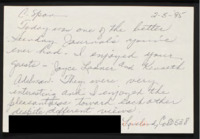 C-Span 2-5-95
Today was one of the better
Sunday Journals you've
ever had. I enjoyed your
guests - Joyce and Kenneth
Adelman. They were very
interesting and I enjoyed the
pleasantness toward each other
despite different views.